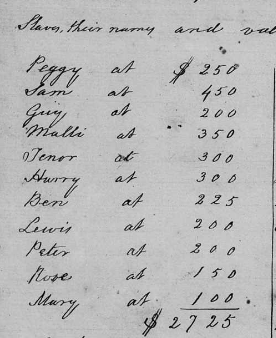 Slaves, their names and val
Peggy at $ 250
Sam at 450
Guy at 200
Malli at 350
Tenor at 300
Harry at 300
Ben at 225
Lewis at 200
Peter at 200
Rose at 150
Mary at 100
$ 2725